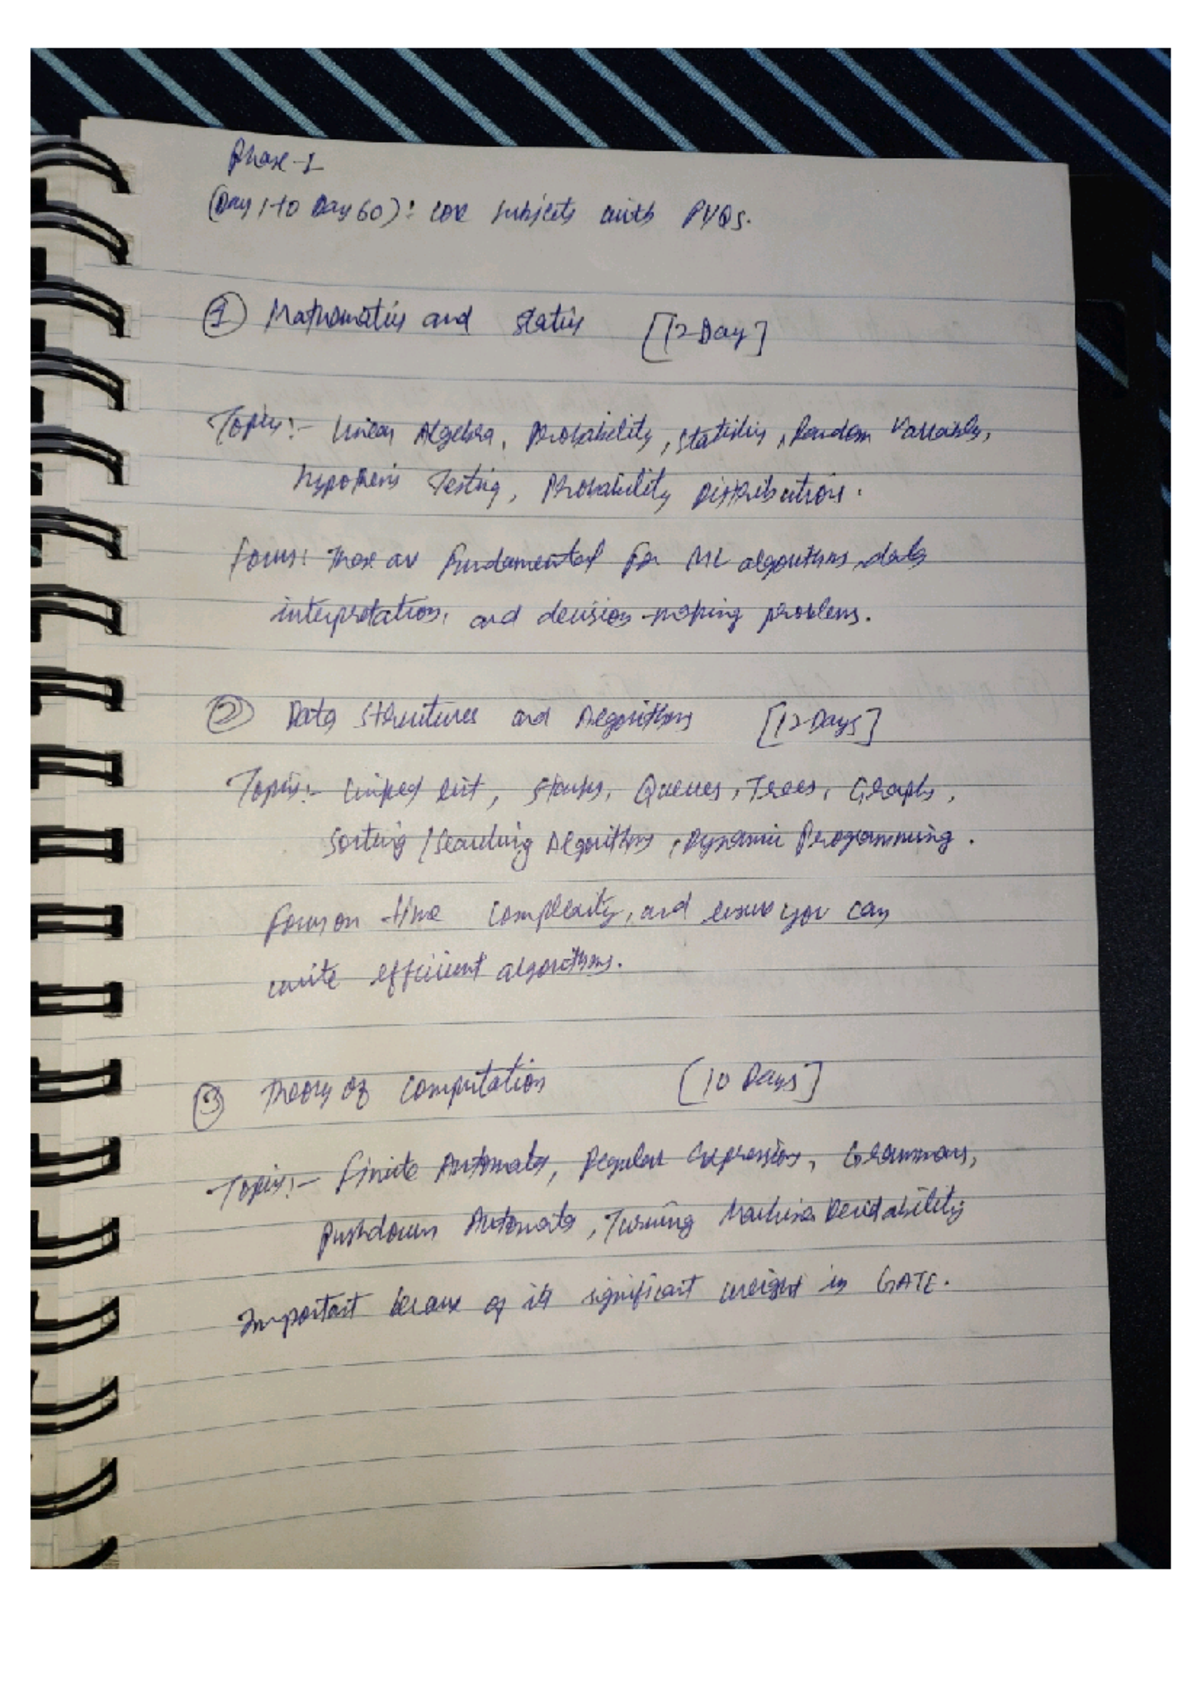 Phase-1
(Day 1 to Day 60): core subjects with PYQs.
① Mathematics and statics [12-Day]
Topics:- Linear Algebra, Probability, statistics, Random Variables,
Hypothesis Testing, Probability Distributions.
Focus: These are fundamental for ML algorithms, data
interpretation, and decision-making problems.
② Data Structures and Algorithms [12-Days]
Topics:- Linked list, Stacks, Queues, Trees, Graphs,
Sorting / Searching Algorithms, Dynamic Programming.
Focus on time complexity, and ensure you can
write efficient algorithms.
③ Theory of Computation [10 Days]
Topics:- Finite Automata, Regular Expressions, Grammars,
Pushdown Automata, Turing Machines Decidability
Important because of its significant weight in GATE.